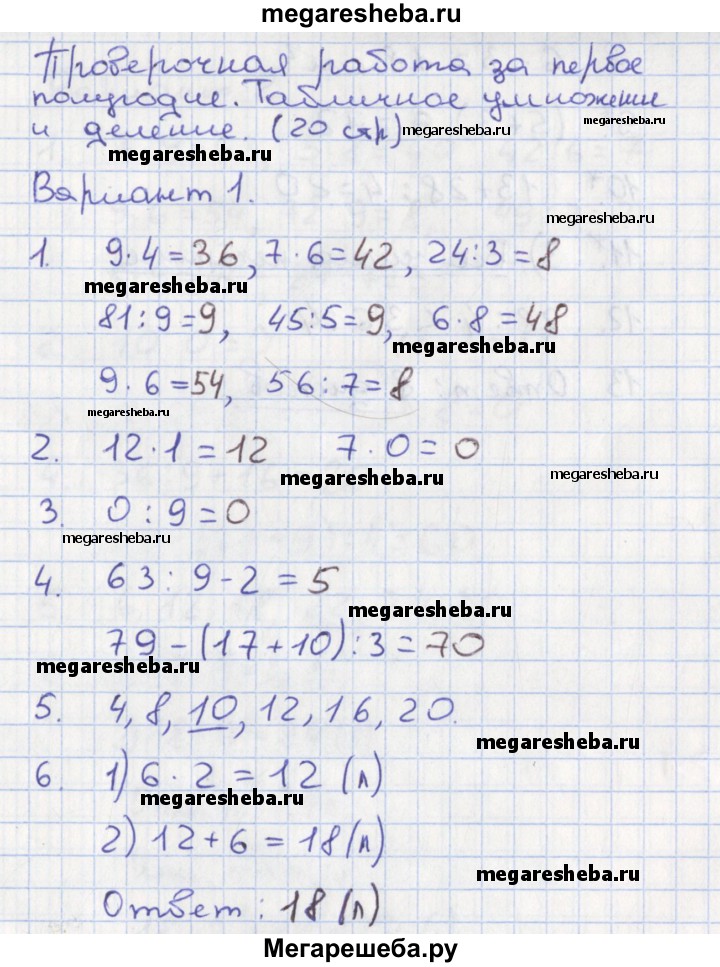 megaresheba.ru
Проверочная работа за первое
полугодие. Табличное умножение
и деление. (20 стр) megaresheba.ru megaresheba.ru
megaresheba.ru
Вариант 1.
megaresheba.ru
1. 9·4=36, 7·6=42, 24:3=8
megaresheba.ru
81:9=9, 45:5=9, 6·8=48
megaresheba.ru
9·6=54, 56:7=8
megaresheba.ru
2. 12·1=12 7·0=0
megaresheba.ru megaresheba.ru
3. 0:9=0
megaresheba.ru
4. 63:9-2=5
megaresheba.ru
79-(17+10):3=70
megaresheba.ru
5. 4, 8, 10, 12, 16, 20.
megaresheba.ru
6. 1) 6·2=12 (л)
megaresheba.ru
2) 12+6=18 (л)
megaresheba.ru
Ответ: 18 (л)
Мегарешеба.ру